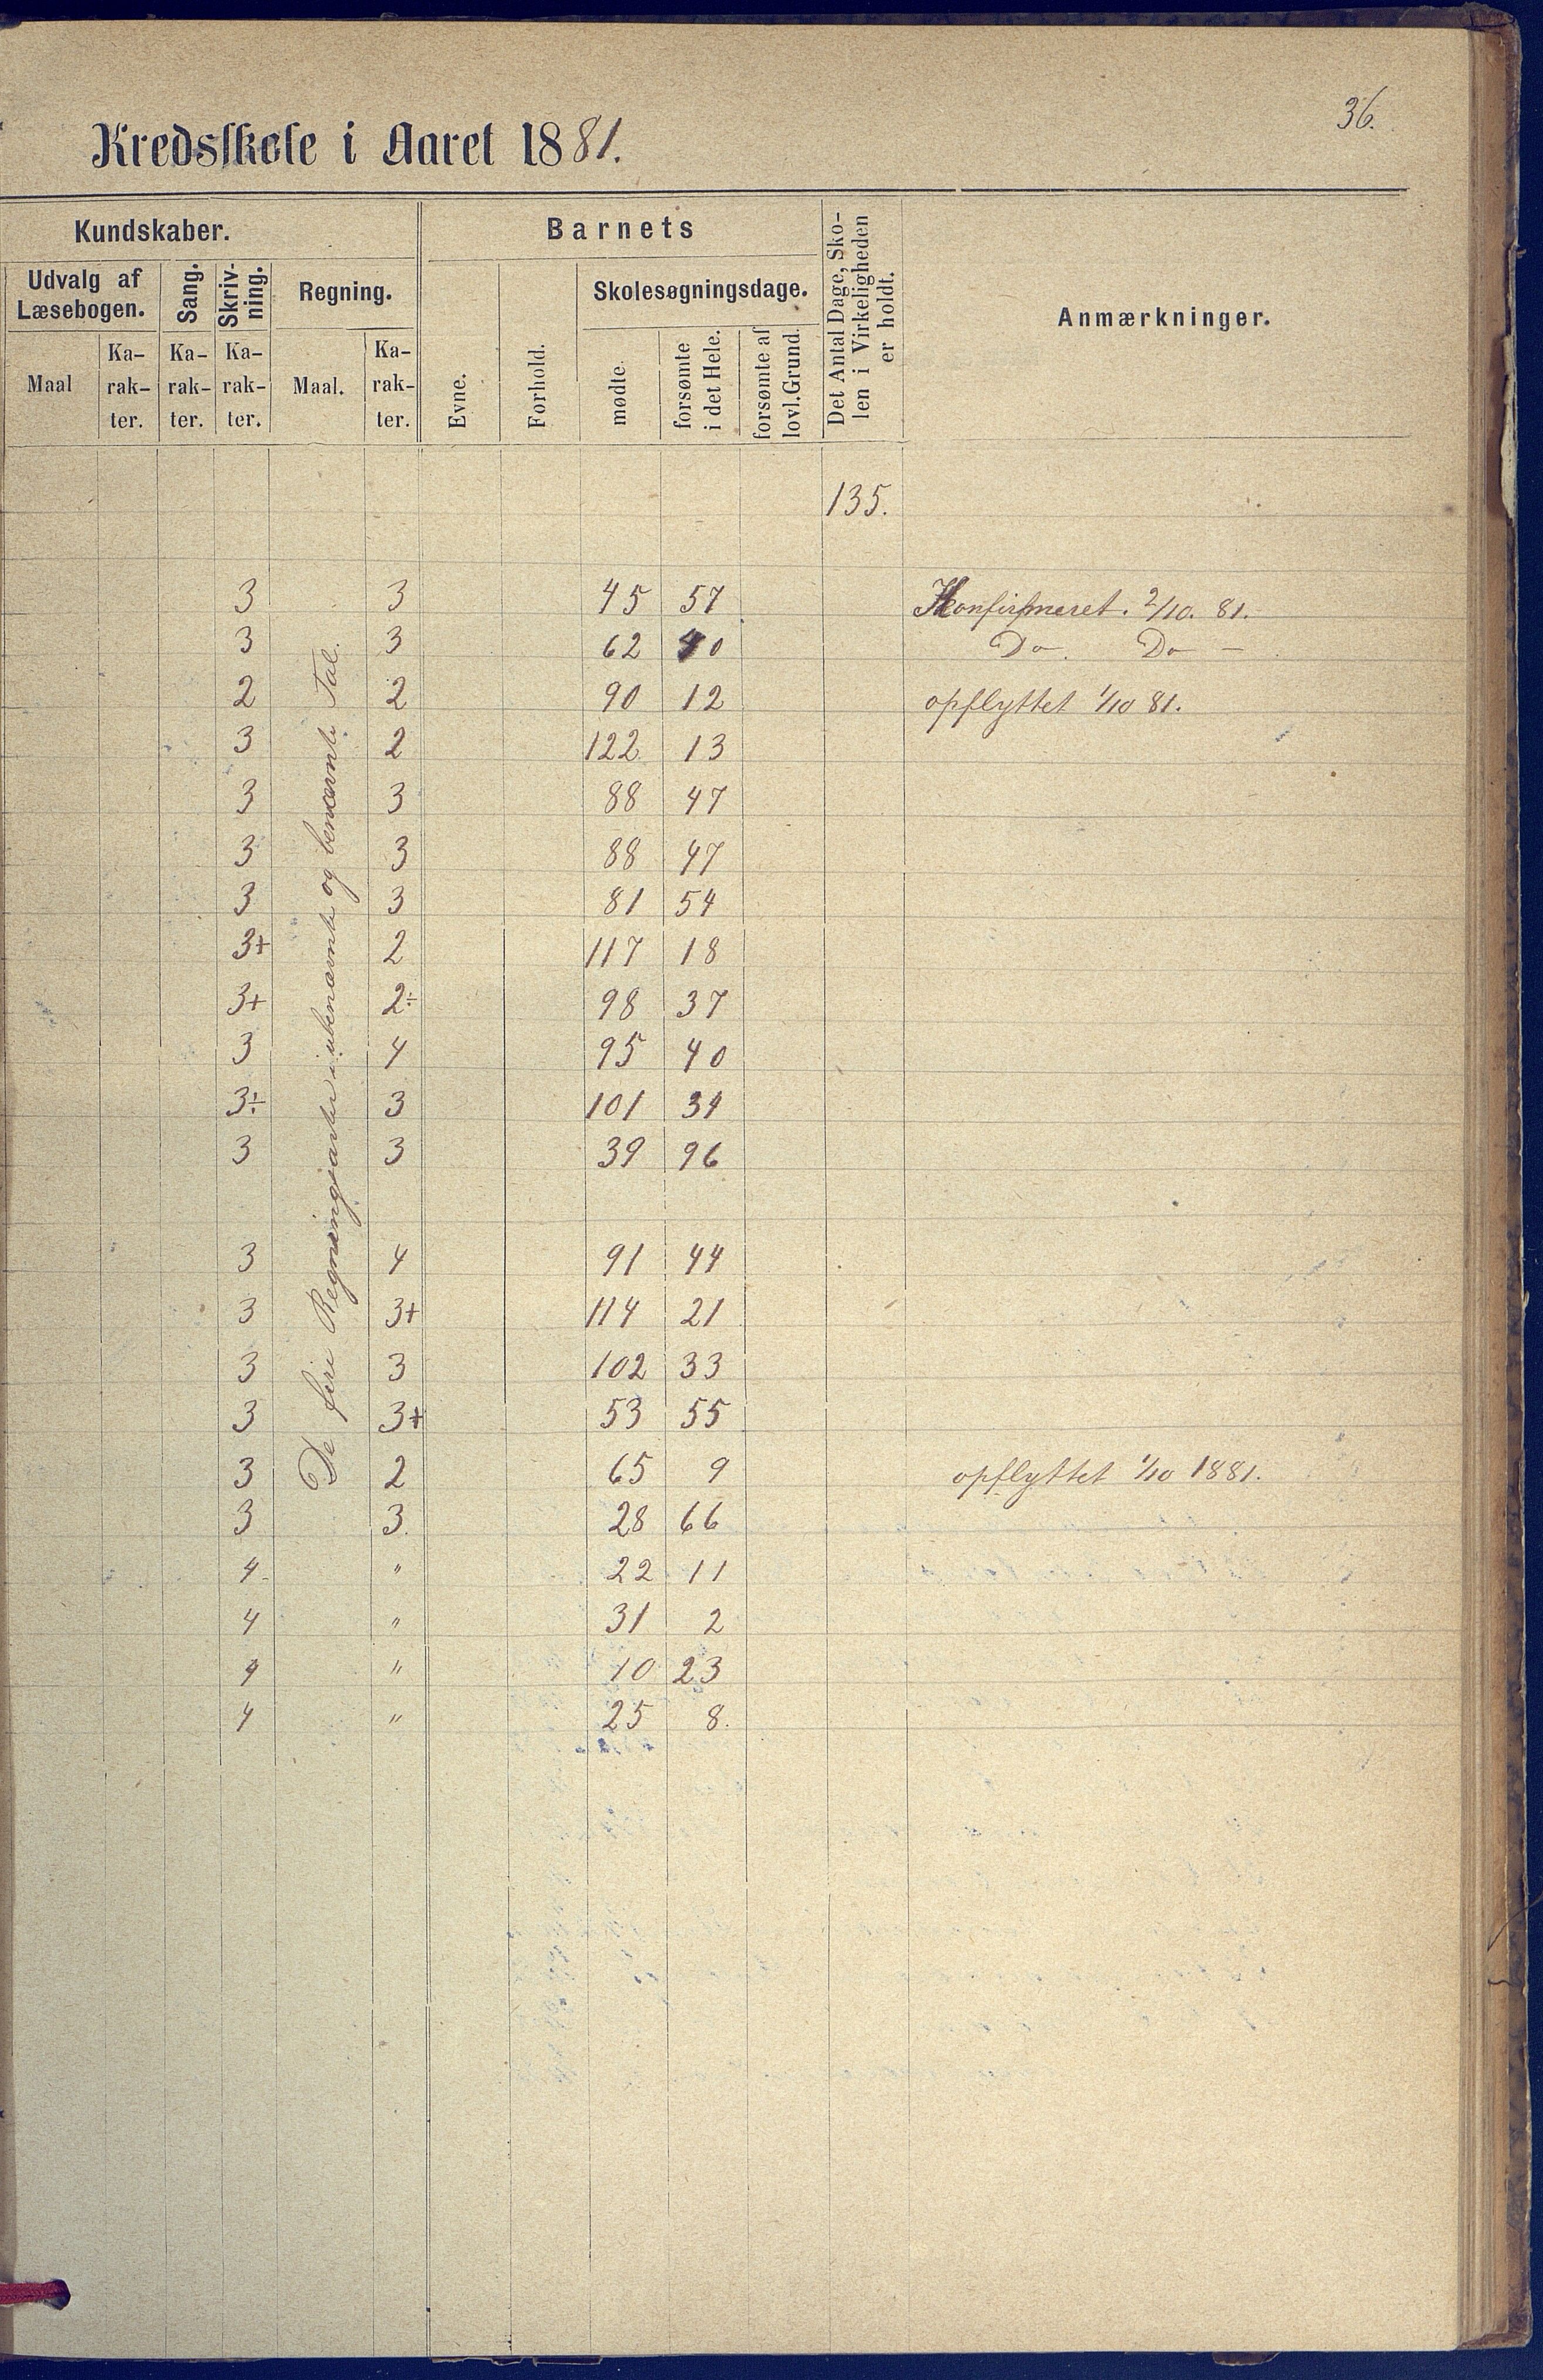 36.
Kredsskole i Aaret 1881.
Kundskaber. Barnets Det Antal Dage, Sko-
len i Virkeligheden
er holdt. Anmærkninger.
Udvalg af
Læsebogen. Sang. Skriv-
ning. Regning. Evne. Forhold. Skolesøgningsdage.
Maal Ka-
rak-
ter. Ka-
rak-
ter. Ka-
rak-
ter. Maal. Ka-
rak-
ter. mødte. forsømte
i det Hele. forsømte af
lovl. Grund.
135.
De fire Regningsarter i ubenævnte og benævnte Tal.
3 3 45 57 Konfirmeret. 2/10. 81.
3 3 62 40 Do. Do –
2 2 90 12 opflyttet 1/10 81.
3 2 122 13
3 3 88 47
3 3 88 47
3 3 81 54
3+ 2 117 18
3+ 2÷ 98 37
3 4 95 40
3÷ 3 101 34
3 3 39 96
3 4 91 44
3 3+ 114 21
3 3 102 33
3 3+ 53 55
3 2 65 9 opflyttet 1/10 1881.
3 3. 28 66
4 " 22 11
4 " 31 2
4 " 10 23
4 " 25 8.